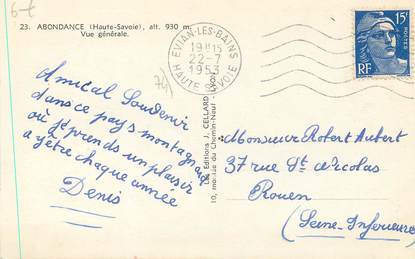 6-€
23. ABONDANCE (Haute-Savoie), alt. 930 m.
Vue générale.
EVIAN-LES-BAINS
19H15
22-7
1953
HAUTE SAVOIE
15F
POSTES
RF
(74)
Amical Souvenir
dans ce pays montagnard
où je prends un plaisir
a y être chaque année
Denis
Les Editions J. CELLARD - LYON
10, montée du Chemin-Neuf
Monsieur Robert Aubert
37 rue St Nicolas
Rouen
(Seine-Inferieure)